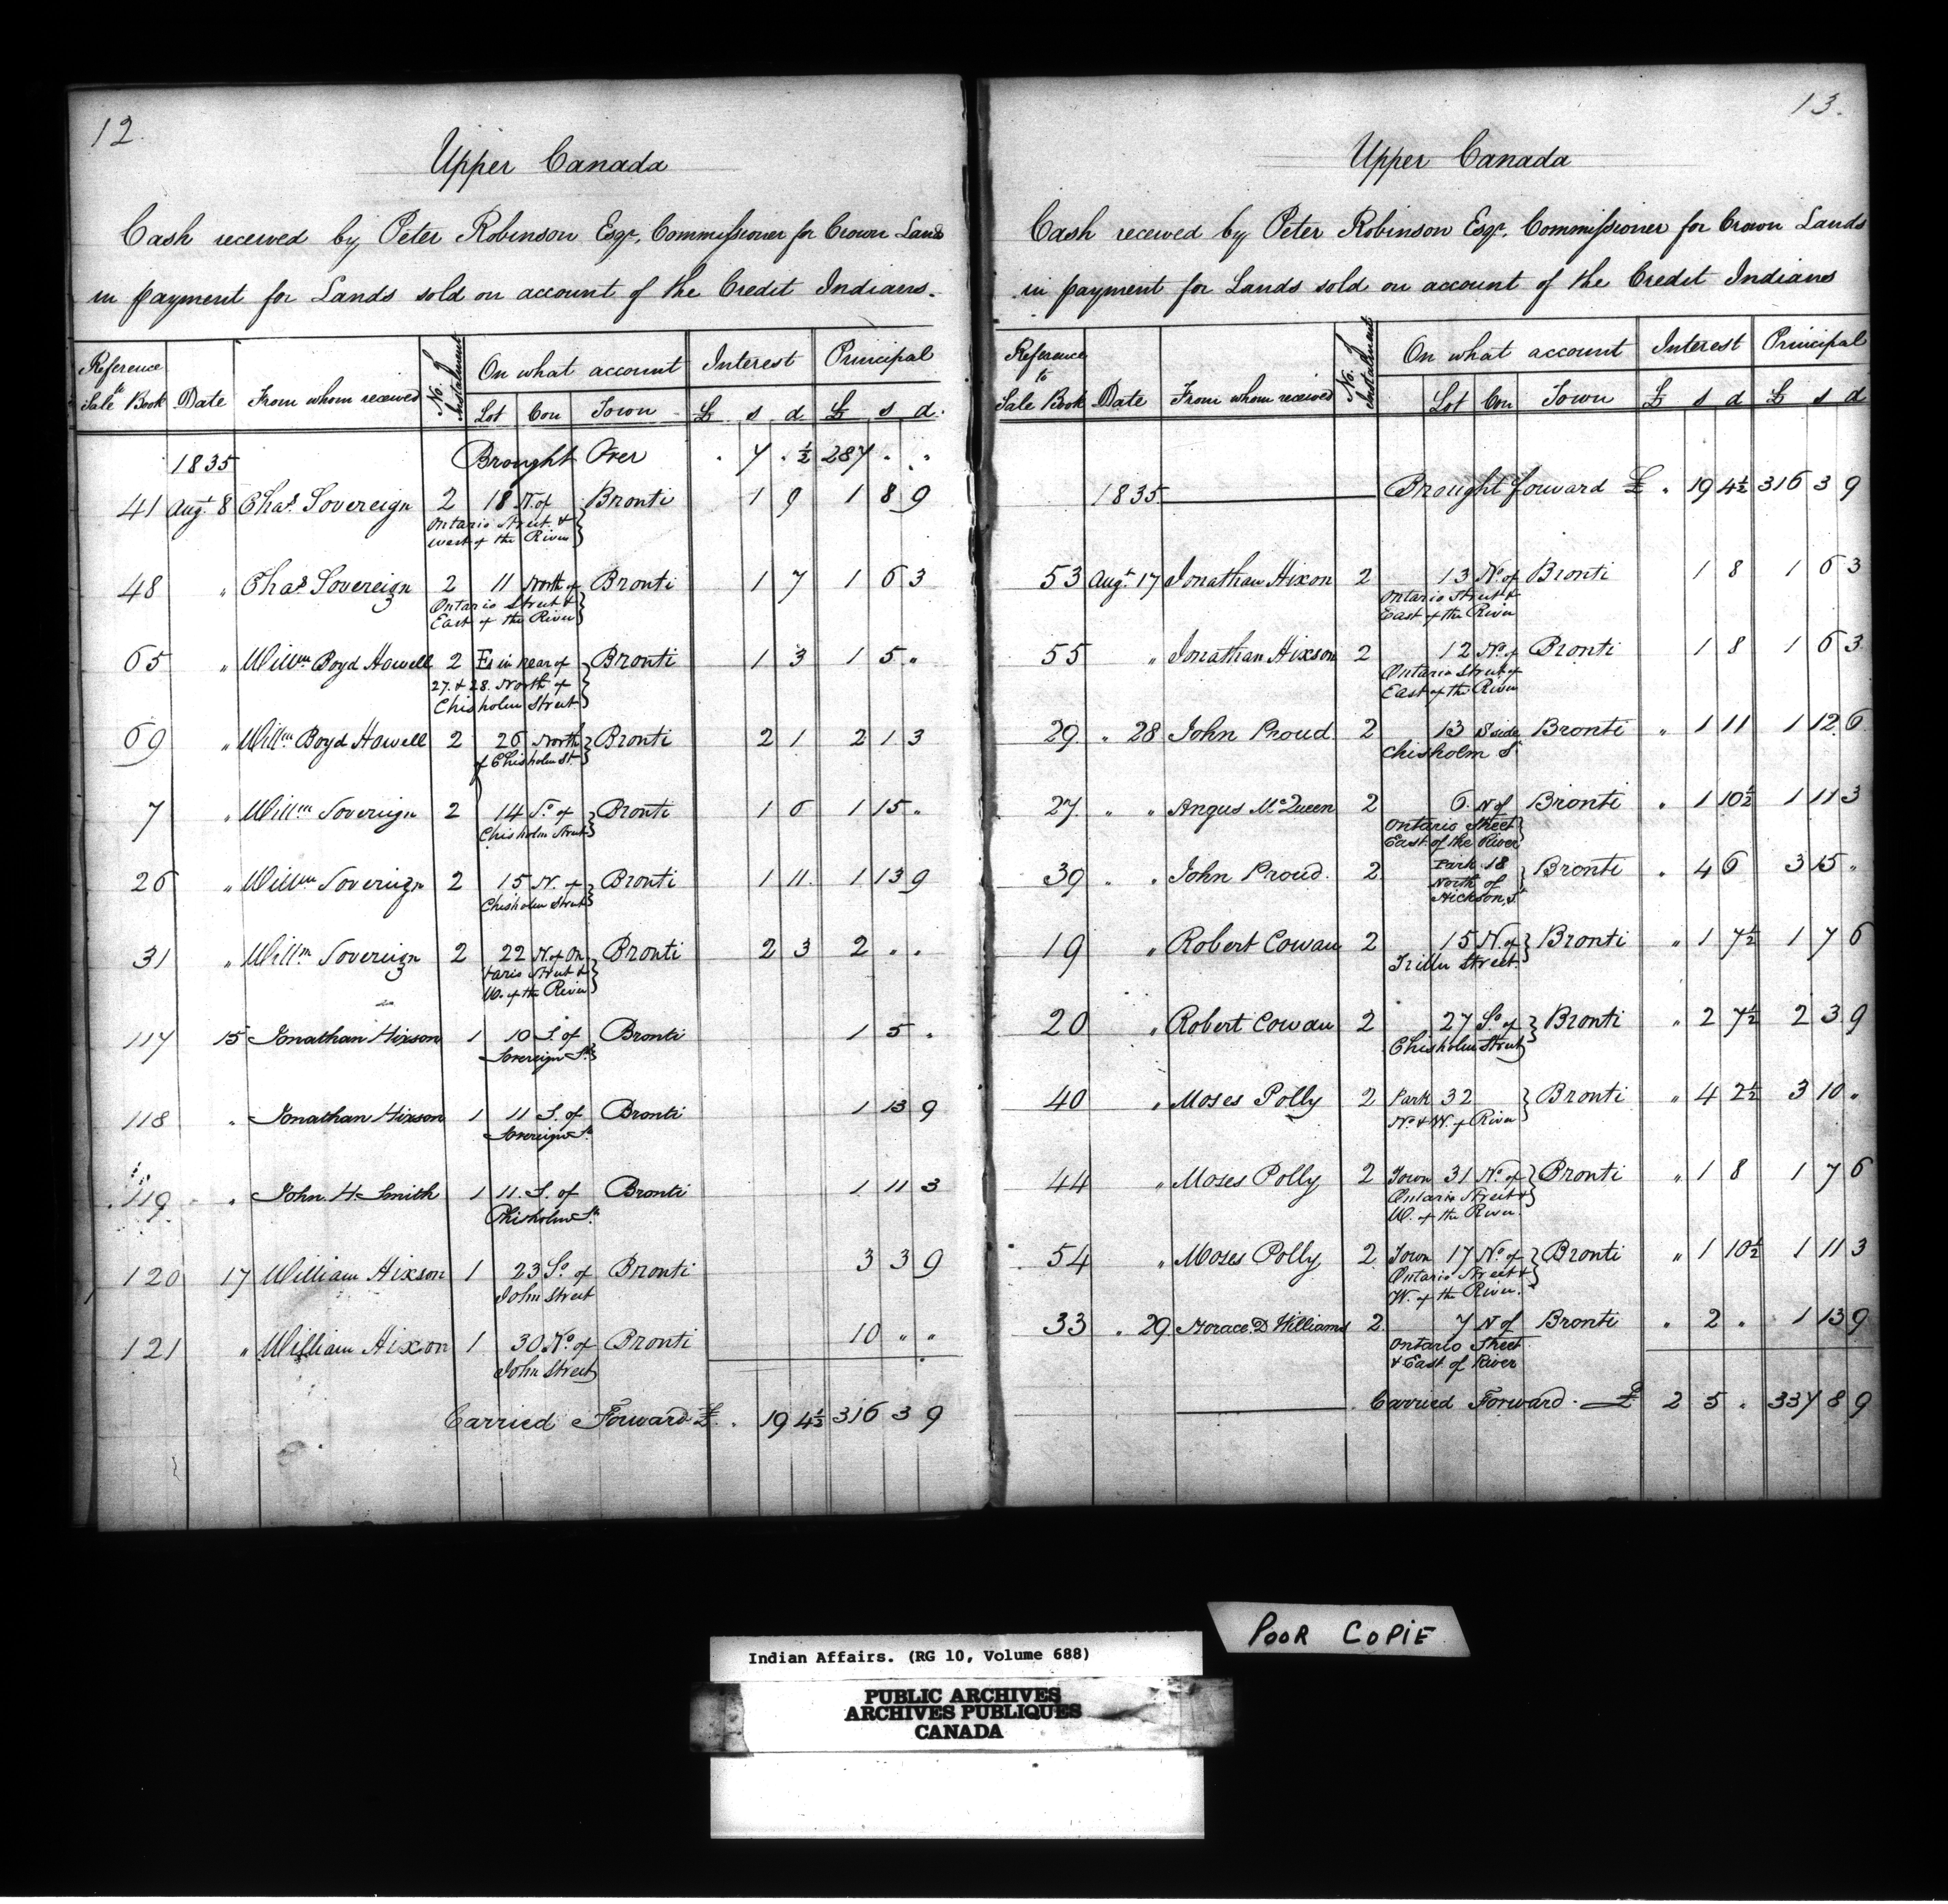 12.
Upper Canada
Cash received by Peter Robinson Esqr, Commissioner for Crown Lands
in payment for Lands sold on account of the Credit Indians.
Reference to Sale Book Date From whom received No. of Instalment On what account Interest Principal
Lot Con Town £ s d £ s d.
1835 Brought Over " 7 " ½ 287 " "
41 Augt 8 Chas. Sovereign 2 18 N. of Bronti 1 9 1 8 9
Ontario Street &
West of the River
48 " Chas Sovereign 2 11 North of Bronti 1 7 1 6 3
Ontario Street &
East of the River
65 " Willm Boyd Howell 2 Es in rear of Bronti 1 3 1 5 "
27. & 28. North of
Chisholm Street
69 " Willm Boyd Howell 2 26 North Bronti 2 1 2 1 3
of Chisholm St.
7 " Willm Sovereign 2 14 So. of Bronti 1 6 1 15 "
Chisholm Street
26 " Willm Sovereign 2 15 N. of Bronti 1 11 1 13 9
Chisholm Street
31 " Willm Sovereign 2 22 N. of On Bronti 2 3 2 " "
tario Street &
W. of the River
117 15 Jonathan Hixson 1 10 S. of Bronti 1 5 "
Sovereign St.
118 " Jonathan Hixson 1 11 S. of Bronti 1 13 9
Sovereign St.
119 " John H. Smith 1 11. S. of Bronti 1 11 3
Chisholm St.
120 17 William Hixson 1 23 So. of Bronti 3 3 9
John Street
121 " William Hixon 1 30 No. of Bronti 10 " "
John Street
Carried Forward £ . 19 4½ 316 3 9
13.
Upper Canada
Cash received by Peter Robinson Esqr. Commissioner for Crown Lands
in payment for Lands sold on account of the Credit Indians
Reference to Sale Book Date From whom received No. of Instalment On what account Interest Principal
Lot Con Town £ s d £ s d
1835 Brought forward £ " 19 4½ 316 3 9
53 Augt 17 Jonathan Hixon 2 13 No. of Bronti 1 8 1 6 3
Ontario Street &
East of the River
55 " Jonathan Hixson 2 12 No. of Bronti 1 8 1 6 3
Ontario Street &
East of the River
29 " 28 John Proud 2 13 S side Bronti " 1 11 1 12 6
Chisholm St
27. " " Angus McQueen 2 6. N of Bronti " 1 10½ 1 11 3
Ontario Street
East of the River
39 " " John Proud. 2 Park 18 Bronti " 4 6 3 15 "
North of
Hickson St
19 " Robert Cowan 2 15 N. of Bronti " 1 7½ 1 7 6
Triller Street.
20 " Robert Cowan 2 27 So. of Bronti " 2 7½ 2 3 9
Chisholm Street
40 " Moses Polly 2 Park 32 Bronti " 4 2½ 3 10 "
No. & W. of River
44 " Moses Polly 2 Town 31 No. of Bronti " 1 8 1 7 6
Ontario Street &
W. of the River.
54 " Moses Polly 2 Town 17 No. of Bronti " 1 10½ 1 11 3
Ontario Street &
W. of the River.
33 " 29 Horace D Williams 2 7 N of Bronti " 2 " 1 13 9
Ontario Street
& East of River
Carried Forward. £ 2 5 " 337 8 9
POOR COPIE
Indian Affairs. (RG 10, Volume 688)
PUBLIC ARCHIVES
ARCHIVES PUBLIQUES
CANADA